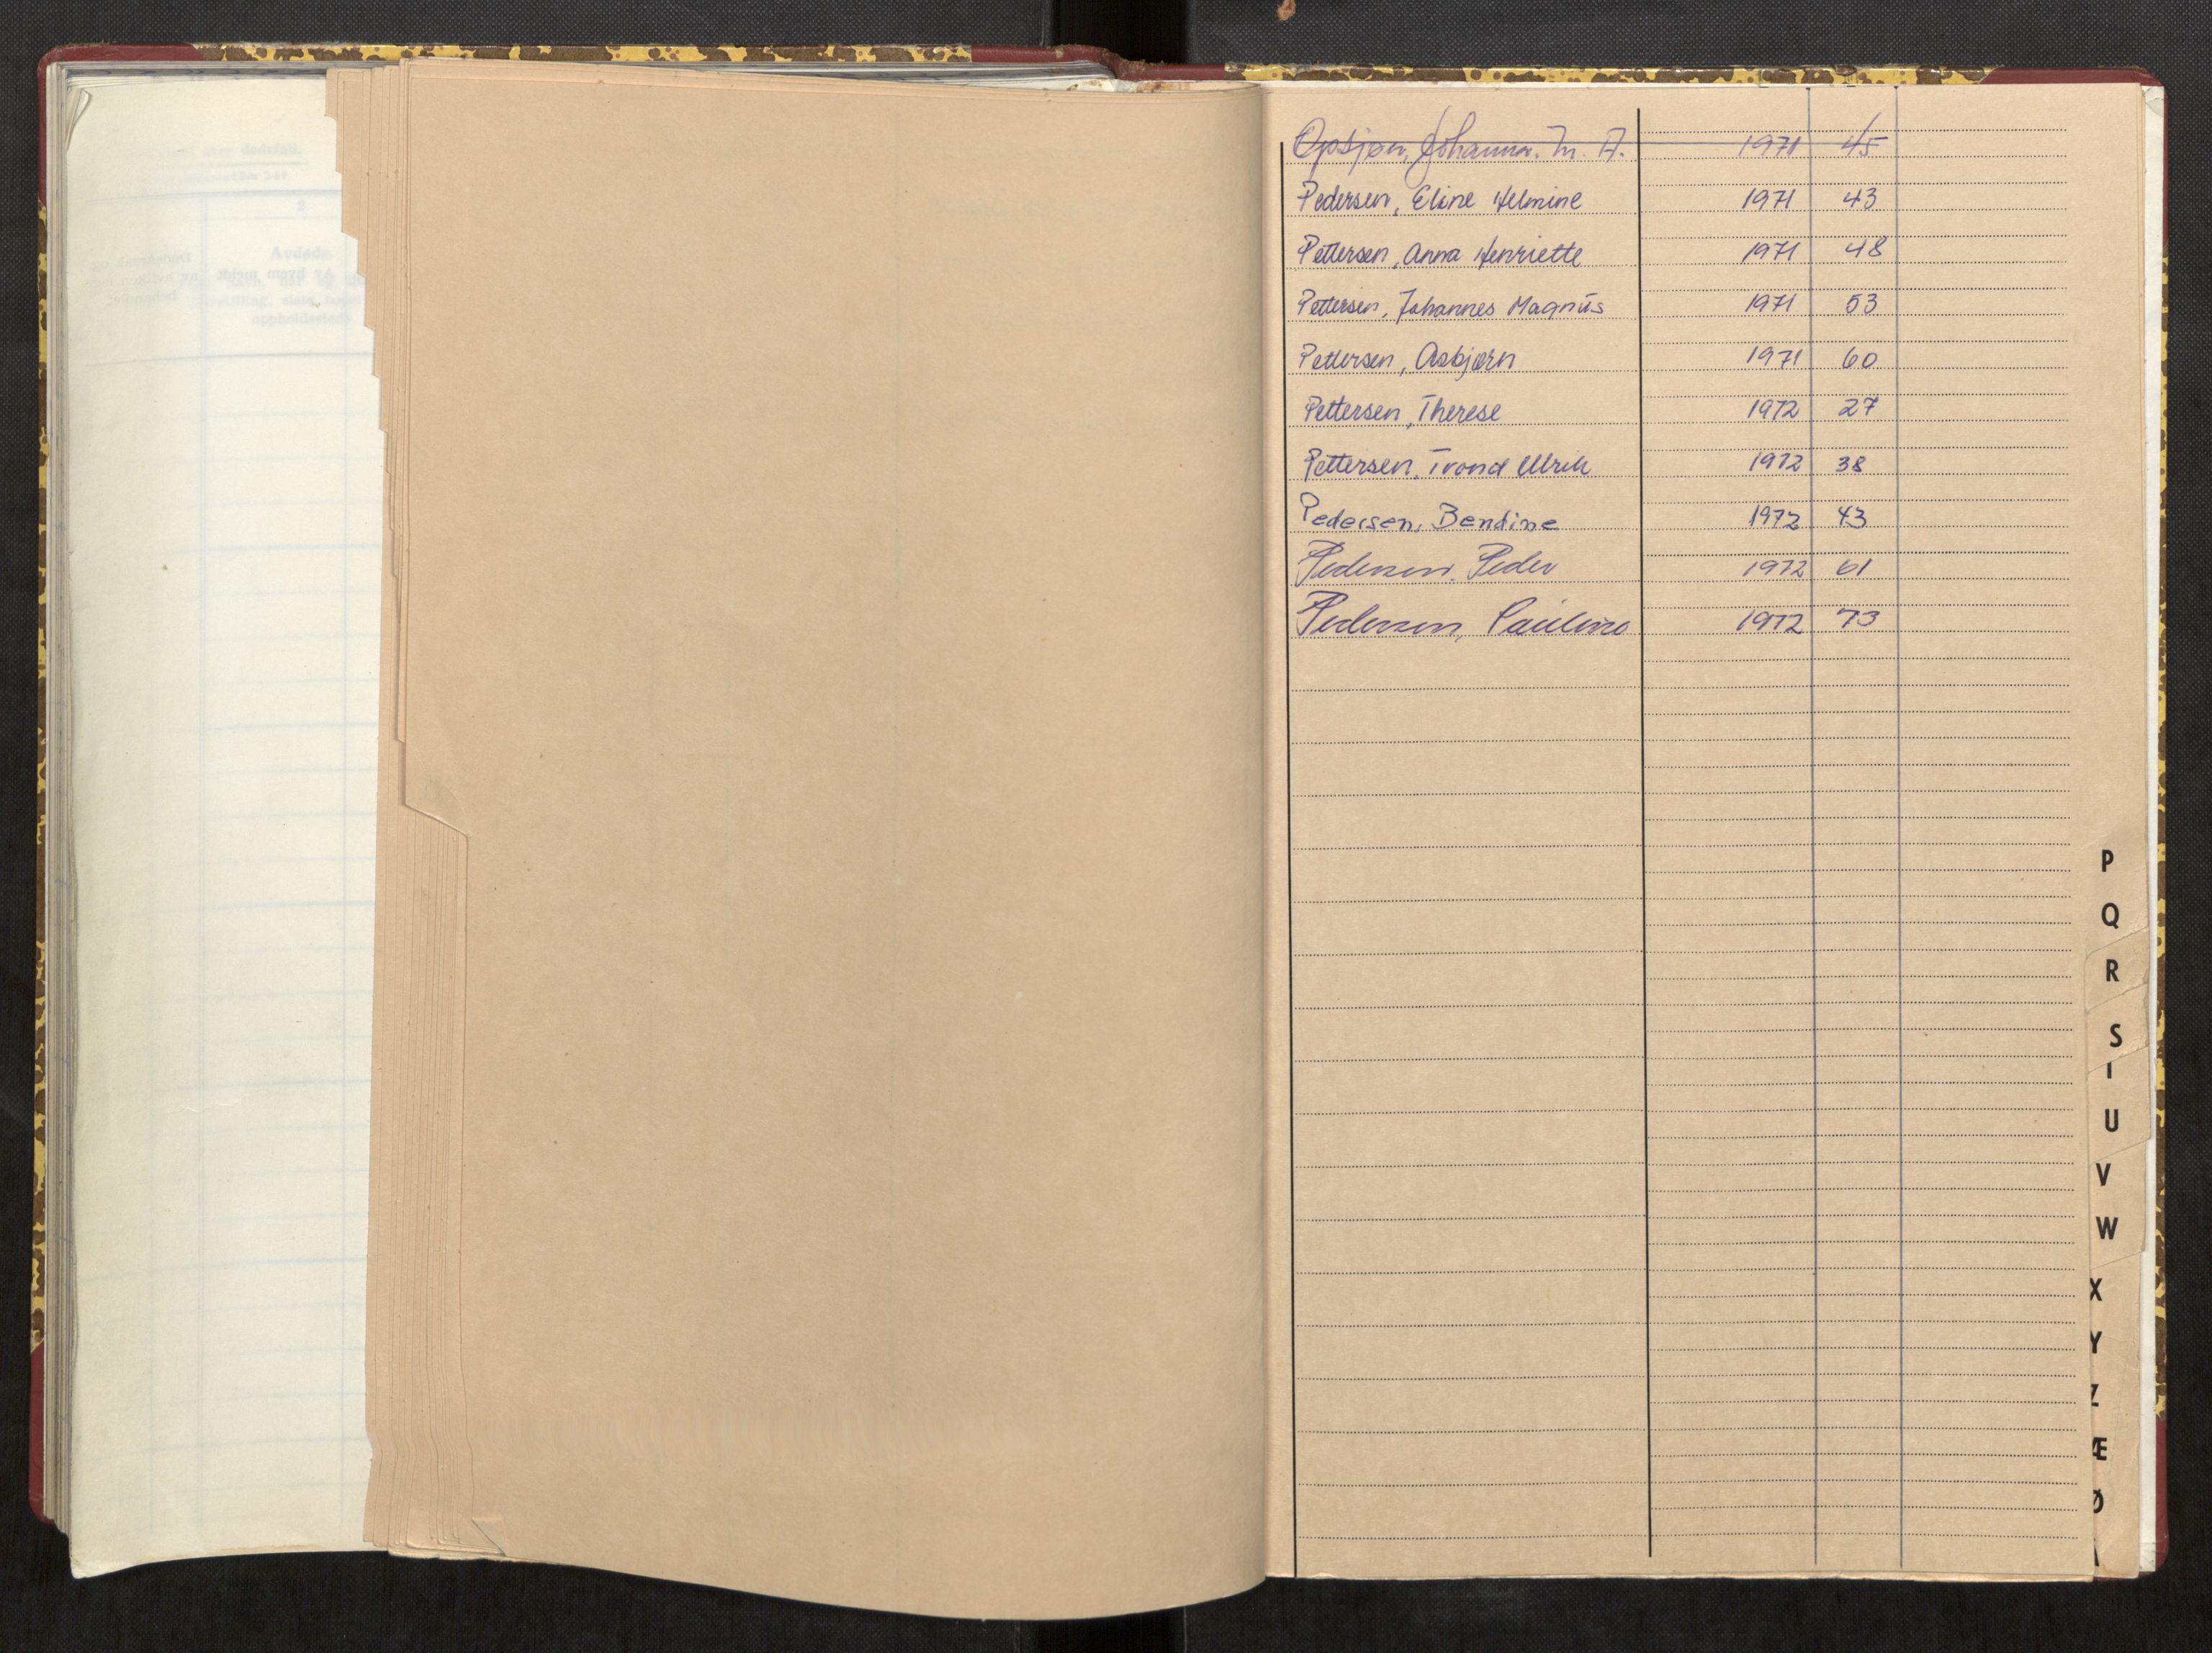 Avdøde.
Opsjøn, Johanna. M. A. 1971 45
Pedersen, Eline Helmine 1971 43
Pettersen, Anna Henriette 1971 48
Pettersen, Johannes Magnus 1971 53
Pettersen, Asbjørn 1971 60
Pettersen, Therese 1972 27
Pettersen, Trond Ulrik 1972 38
Pedersen, Bendine 1972 43
Pedersen, Peder 1972 61
Pedersen, Pauline 1972 73
P
Q
R
S
T
U
V
W
X
Y
Z
Æ
Ø